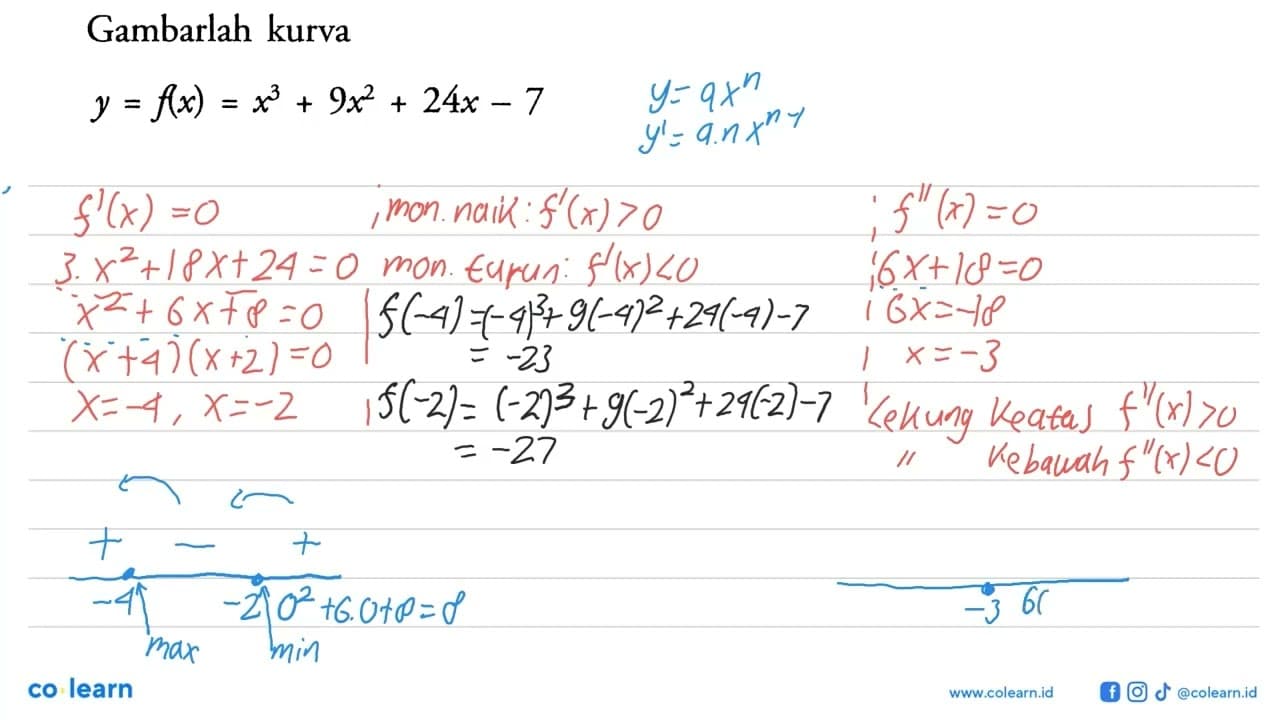 Gambarlah kurva
y = f(x) = x³ + 9x² + 24x – 7
y = ax^n
y' = a.n x^(n-1)
f'(x) = 0
3.x² + 18x + 24 = 0
x² + 6x + 8 = 0
(x+4)(x+2) = 0
x = -4, x = -2
mon. naik: f'(x) > 0
mon. turun: f'(x) < 0
f(-4) = (-4)³ + 9(-4)² + 24(-4) - 7
= -23
f(-2) = (-2)³ + 9(-2)² + 24(-2) - 7
= -27
f''(x) = 0
6x + 18 = 0
6x = -18
x = -3
cekung keatas f''(x) > 0
" kebawah f''(x) < 0
+ – +
-4 -2 0² + 6.0 + 8 = 8
max min
-3 6(
co learn
www.colearn.id @colearn.id